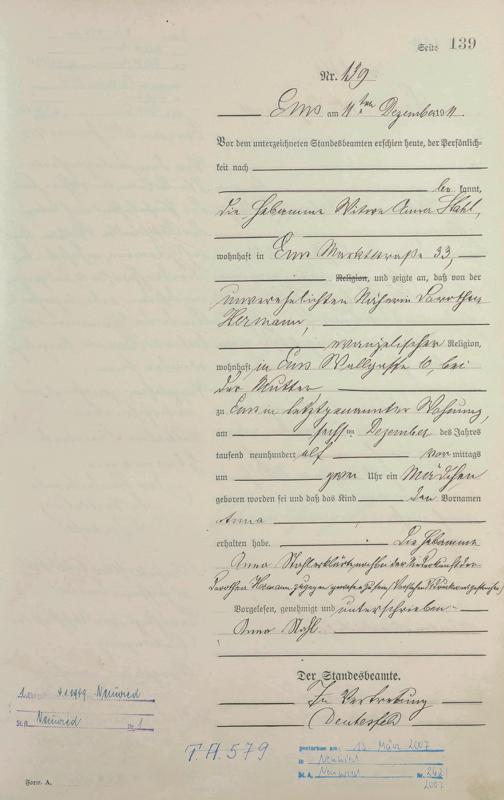 Seite 139
Nr. 139
Ems am 11ten Dezember 1911.
Vor dem unterzeichneten Standesbeamten erschien heute, der Persönlich-
keit nach
be kannt,
die Hebamme Witwe Anna Stahl,
wohnhaft in Ems Marktstraße 33,
Religion, und zeigte an, daß von der
unverehelichten Näherin Dorothea
Hermann,
evangelischer Religion,
wohnhaft in Ems Wallgasse 10, bei
der Mutter
zu Ems in letztgenannter Wohnung,
am sechsten Dezember des Jahres
tausend neunhundert elf vor mittags
um zwei Uhr ein Mädchen
geboren worden sei und daß das Kind den Vornamen
Anna
erhalten habe. Die Hebamme
Anna Stahl erklärt, von der Niederkunft der
Dorothea Hermann zugegen gewesen zu sein.
Vorgelesen, genehmigt und unterschrieben
Anna Stahl.
Der Standesbeamte.
In Vertretung
1949 Neuwied
St.A. Neuwied Nr. 1
T.A. 579
gestorben am: 13. März 2007
in Neuwied
St.A. Neuwied Nr.
2007
Form. A.